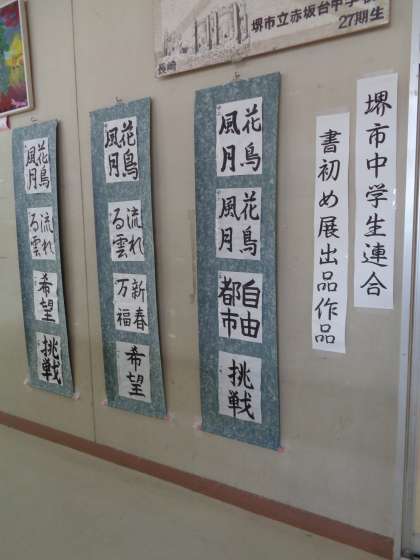 長崎
堺市立赤坂台中学校
27期生
堺市中学生連合
書初め展出品作品
花鳥
風月
花鳥
風月
自由
都市
挑戦
花鳥
風月
流れ
る雲
新春
万福
希望
花鳥
風月
流れ
る雲
希望
挑戦